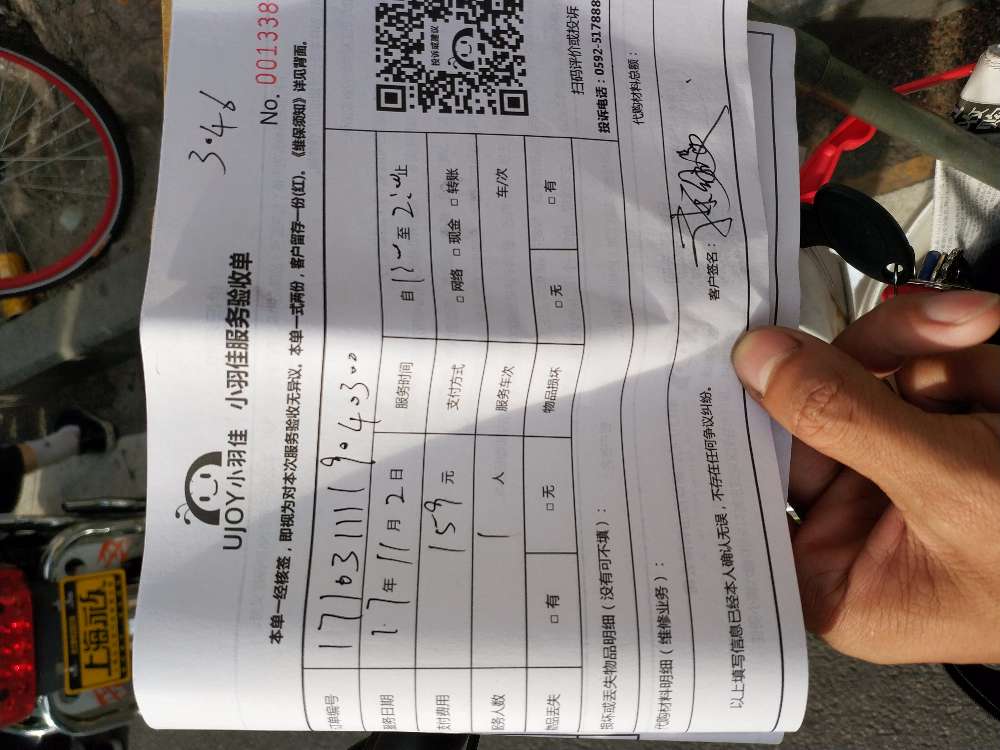 3.46
No. 001338
UJOY小羽佳 小羽佳服务验收单
本单一经核签，即视为对本次服务验收无异议。本单一式两份，客户留存一份(红)。《维保须知》详见背面。
订单编号 1710311119040300
服务日期 17年11月2日 服务时间 自 至 止
支付费用 159元 支付方式 □ 网络 □ 现金 □ 转账
服务人数 1 人 服务车次 车/次
物品丢失 □ 有 □ 无 物品损坏 □ 无 □ 有
投诉或建议
扫码评价或投诉
投诉电话：0592-517888
损坏或丢失物品明细（没有可不填）：
代购材料明细（维修业务）： 代购材料总额：
以上填写信息已经本人确认无误，不存在任何争议纠纷。 客户签名：
上海永久